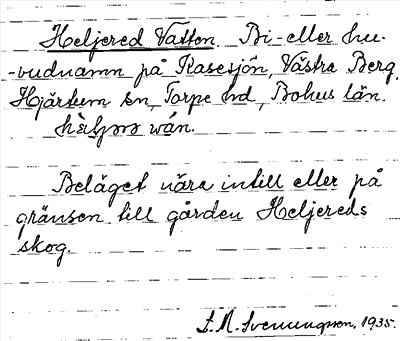 Heljered Vatten. Bi- eller hu-
-vudnamn på Kasesjön, Västra Berg,
Hjärtum sn, Torpe hd, Bohus län.
Beläget nära intill eller på
gränsen till gården Heljereds
skog.
F. M. Svenungsson, 1935.